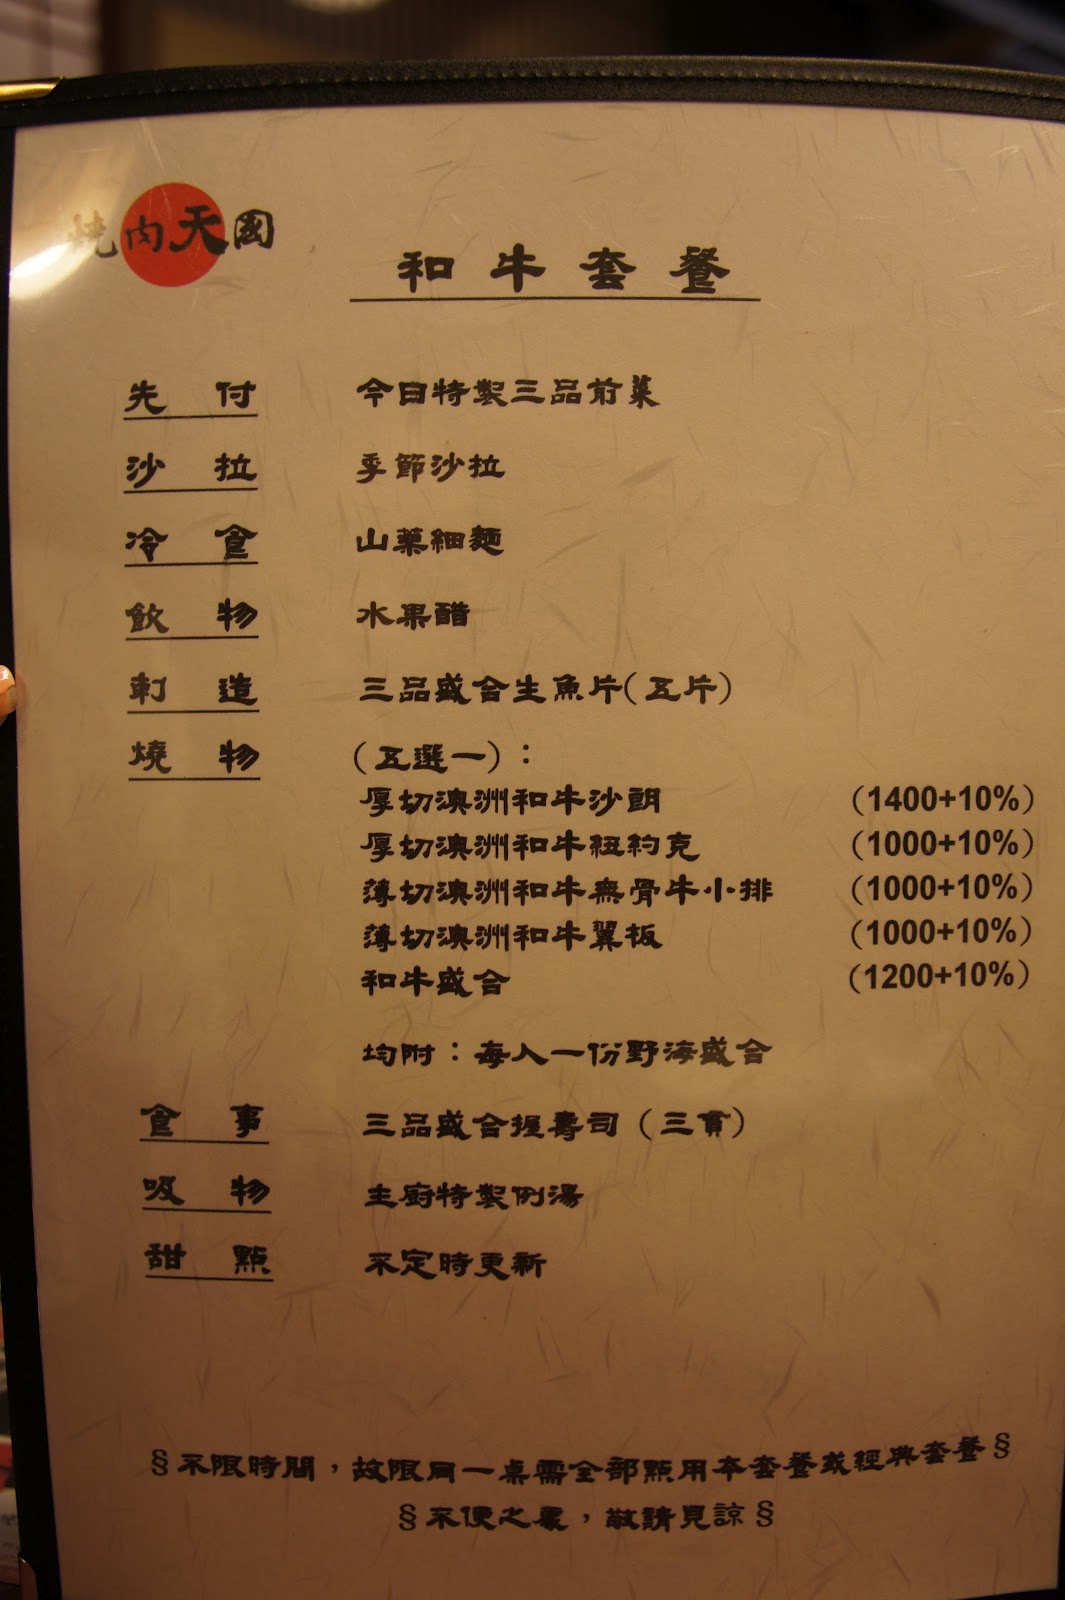 燒肉天國
和牛套餐
先付 今日特製三品前菜
沙拉 季節沙拉
冷食 山藥細麵
飲物 水果醋
刺造 三品盛合生魚片(五片)
燒物 (五選一):
厚切澳洲和牛沙朗 (1400+10%)
厚切澳洲和牛紐約克 (1000+10%)
薄切澳洲和牛無骨牛小排 (1000+10%)
薄切澳洲和牛翼板 (1000+10%)
和牛盛合 (1200+10%)
均附:每人一份野海盛合
食事 三品盛合握壽司(三貫)
吸物 主廚特製例湯
甜點 不定時更新
§不限時間,故限同一桌需全部點用本套餐或經典套餐§
§不便之處,敬請見諒§